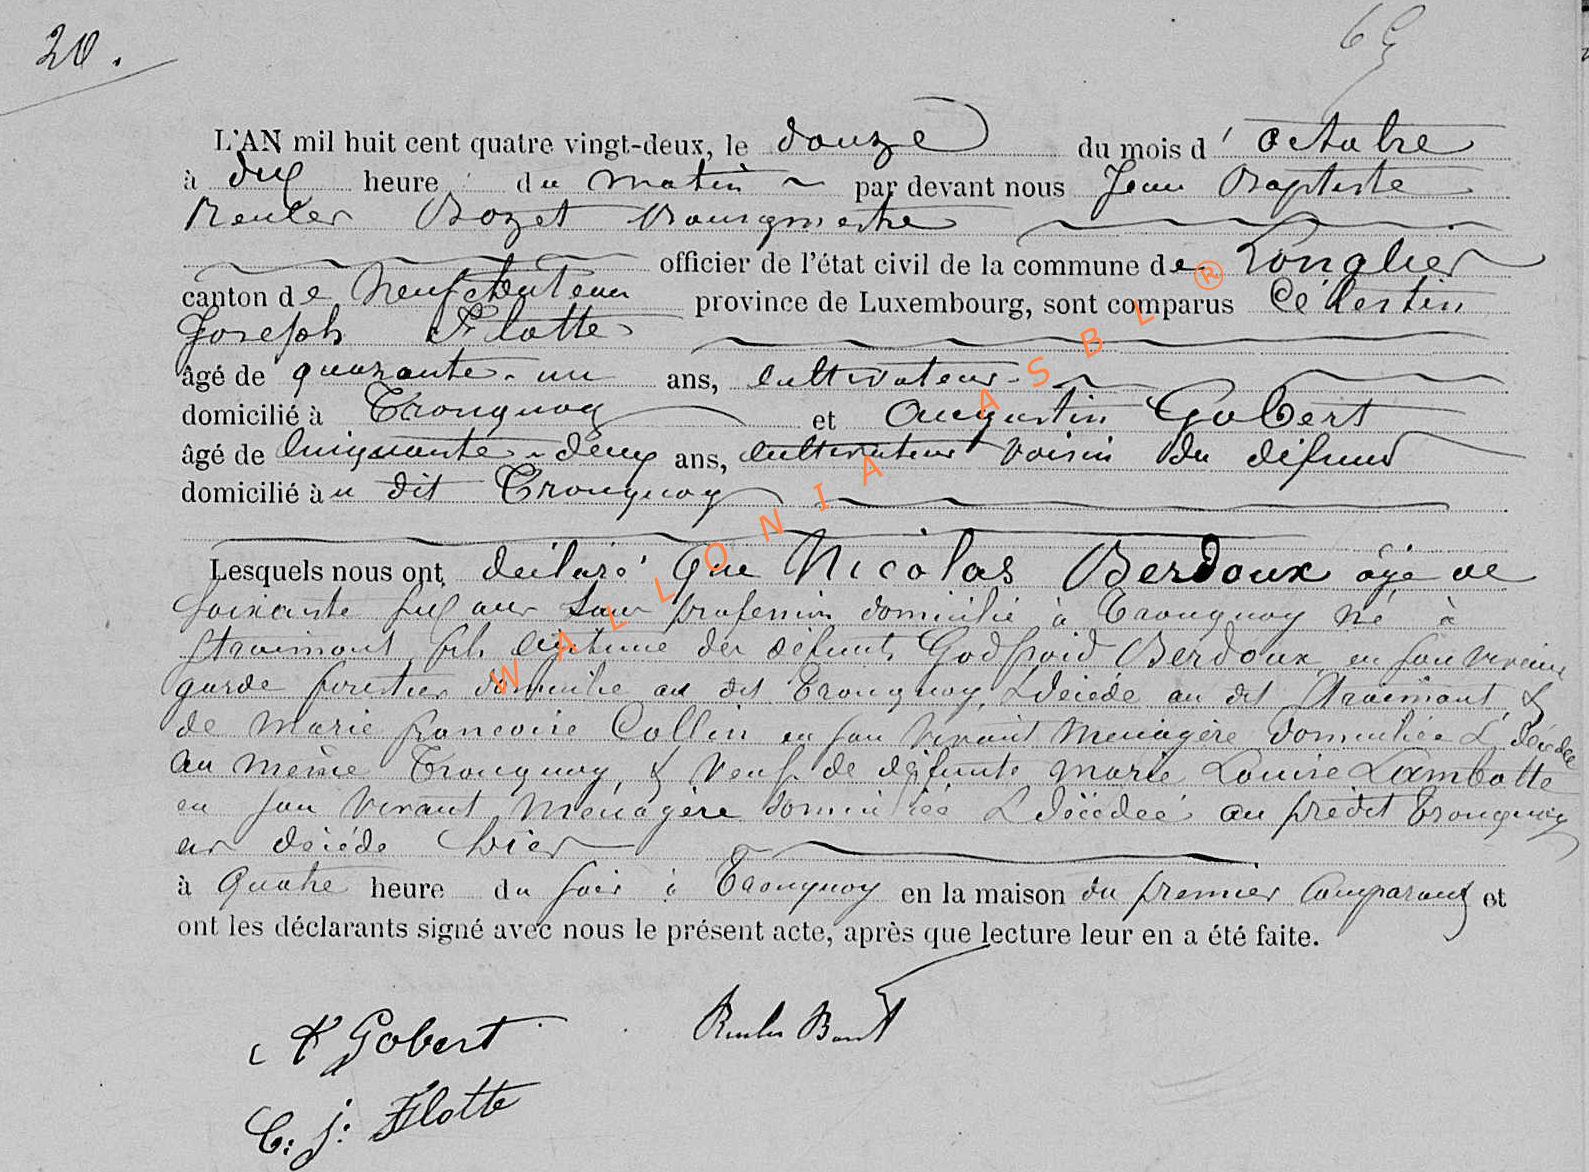 20.
65
L'AN mil huit cent quatre vingt-deux, le douze du mois d'octobre
à dix heure du matin par devant nous Jean Baptiste
Reuler Bozet Bourgmestre
officier de l'état civil de la commune de Longlier
canton de Neufchateau province de Luxembourg, sont comparus Célestin
Joseph Flotte
âgé de quarante-un ans, cultivateur
domicilié à Tronquoy et Augustin Gobert
âgé de cinquante-deux ans, cultivateur voisin du défunt
domicilié au dit Tronquoy
Lesquels nous ont déclaré que Nicolas Berdoux âgé de
soixante six ans sans profession domicilié à Tronquoy né à
Straimont fils légitime des défunts Godfroid Berdoux en son vivant
garde forestier domicilié au dit Tronquoy, & décédé au dit Straimont &
de Marie françoise Collin en son vivant ménagère domiciliée & décédée
au même Tronquoy, & veuf de défunte Marie Louise Lambotte
en son vivant ménagère domiciliée & décédée au prédit Tronquoy
est décédé hier
à quatre heure du soir à Tronquoy en la maison du premier comparant et
ont les déclarants signé avec nous le présent acte, après que lecture leur en a été faite.
A Gobert
C: J: Flotte
WALLONIA ASBL ®